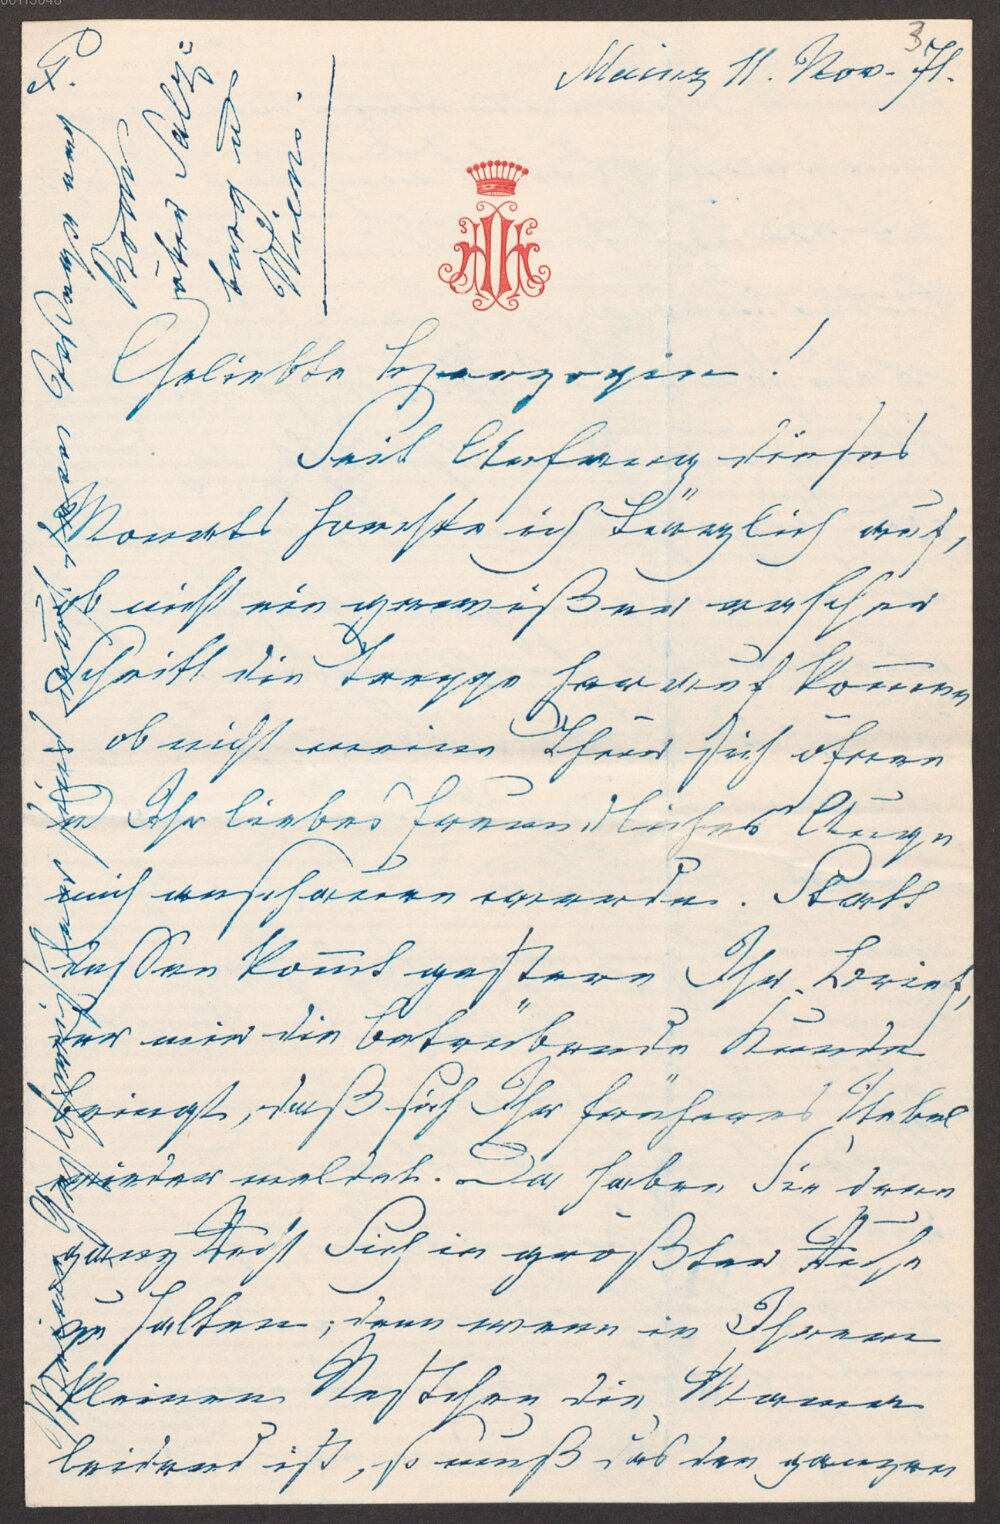 3
Mainz 11. Nov. 71.
Geliebte Herzogin!
Seit Anfang dieses
Monats horchte ich täglich auf,
ob nicht ein gewißer rascher
Schritt die Treppe herauf komme
ob nicht meine Thür sich öfnen
u Ihr liebes freundliches Auge
mich anschauen werde. Statt
dessen komt gestern Ihr Brief,
der mir die betrübende Kunde
bringt, daß sich Ihr früheres Uebel
wieder meldet. Da haben Sie denn
ganz Recht Sich in größter Ruhe
zu halten; denn wenn in Ihrem
kleinen Nestchen die Mama
leidend ist, so muß das den ganzen
Rom
über Salz-
burg u
Wien.